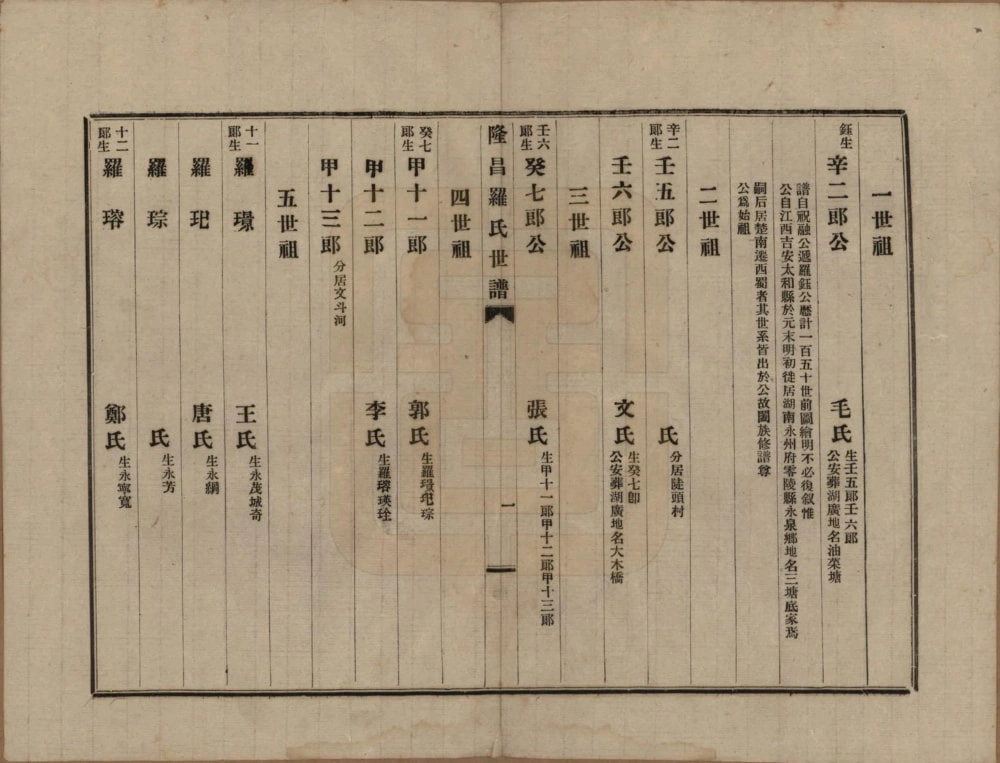 一世祖
鈺生 辛二郎公 毛氏 生壬五郎壬六郎
公安葬湖廣地名油菜塘
譜自祝融公遞羅鈺公歷計一百五十世前圖繪明不必復叙惟
公自江西吉安太和縣於元末明初徙居湖南永州府零陵縣永泉鄉地名三塘底家焉
嗣后居楚南遷西蜀者其世系皆出於公故闔族修譜尊
公爲始祖
二世祖
辛二郎生 壬五郎公 氏 分居陡頭村
壬六郎公 文氏 生癸七郎
公安葬湖廣地名大木橋
三世祖
壬六郎生 癸七郎公 張氏 生甲十一郎甲十二郎甲十三郎
隆昌羅氏世譜 一
四世祖
癸七郎生 甲十一郎 郭氏 生羅璟玘琮
甲十二郎 李氏 生羅瑢瑛珍
甲十三郎 分居文斗河
五世祖
十一郎生 羅璟 王氏 生永茂城奇
羅玘 唐氏 生永綱
羅琮 氏 生永芳
十二郎生 羅瑢 鄭氏 生永寧寬